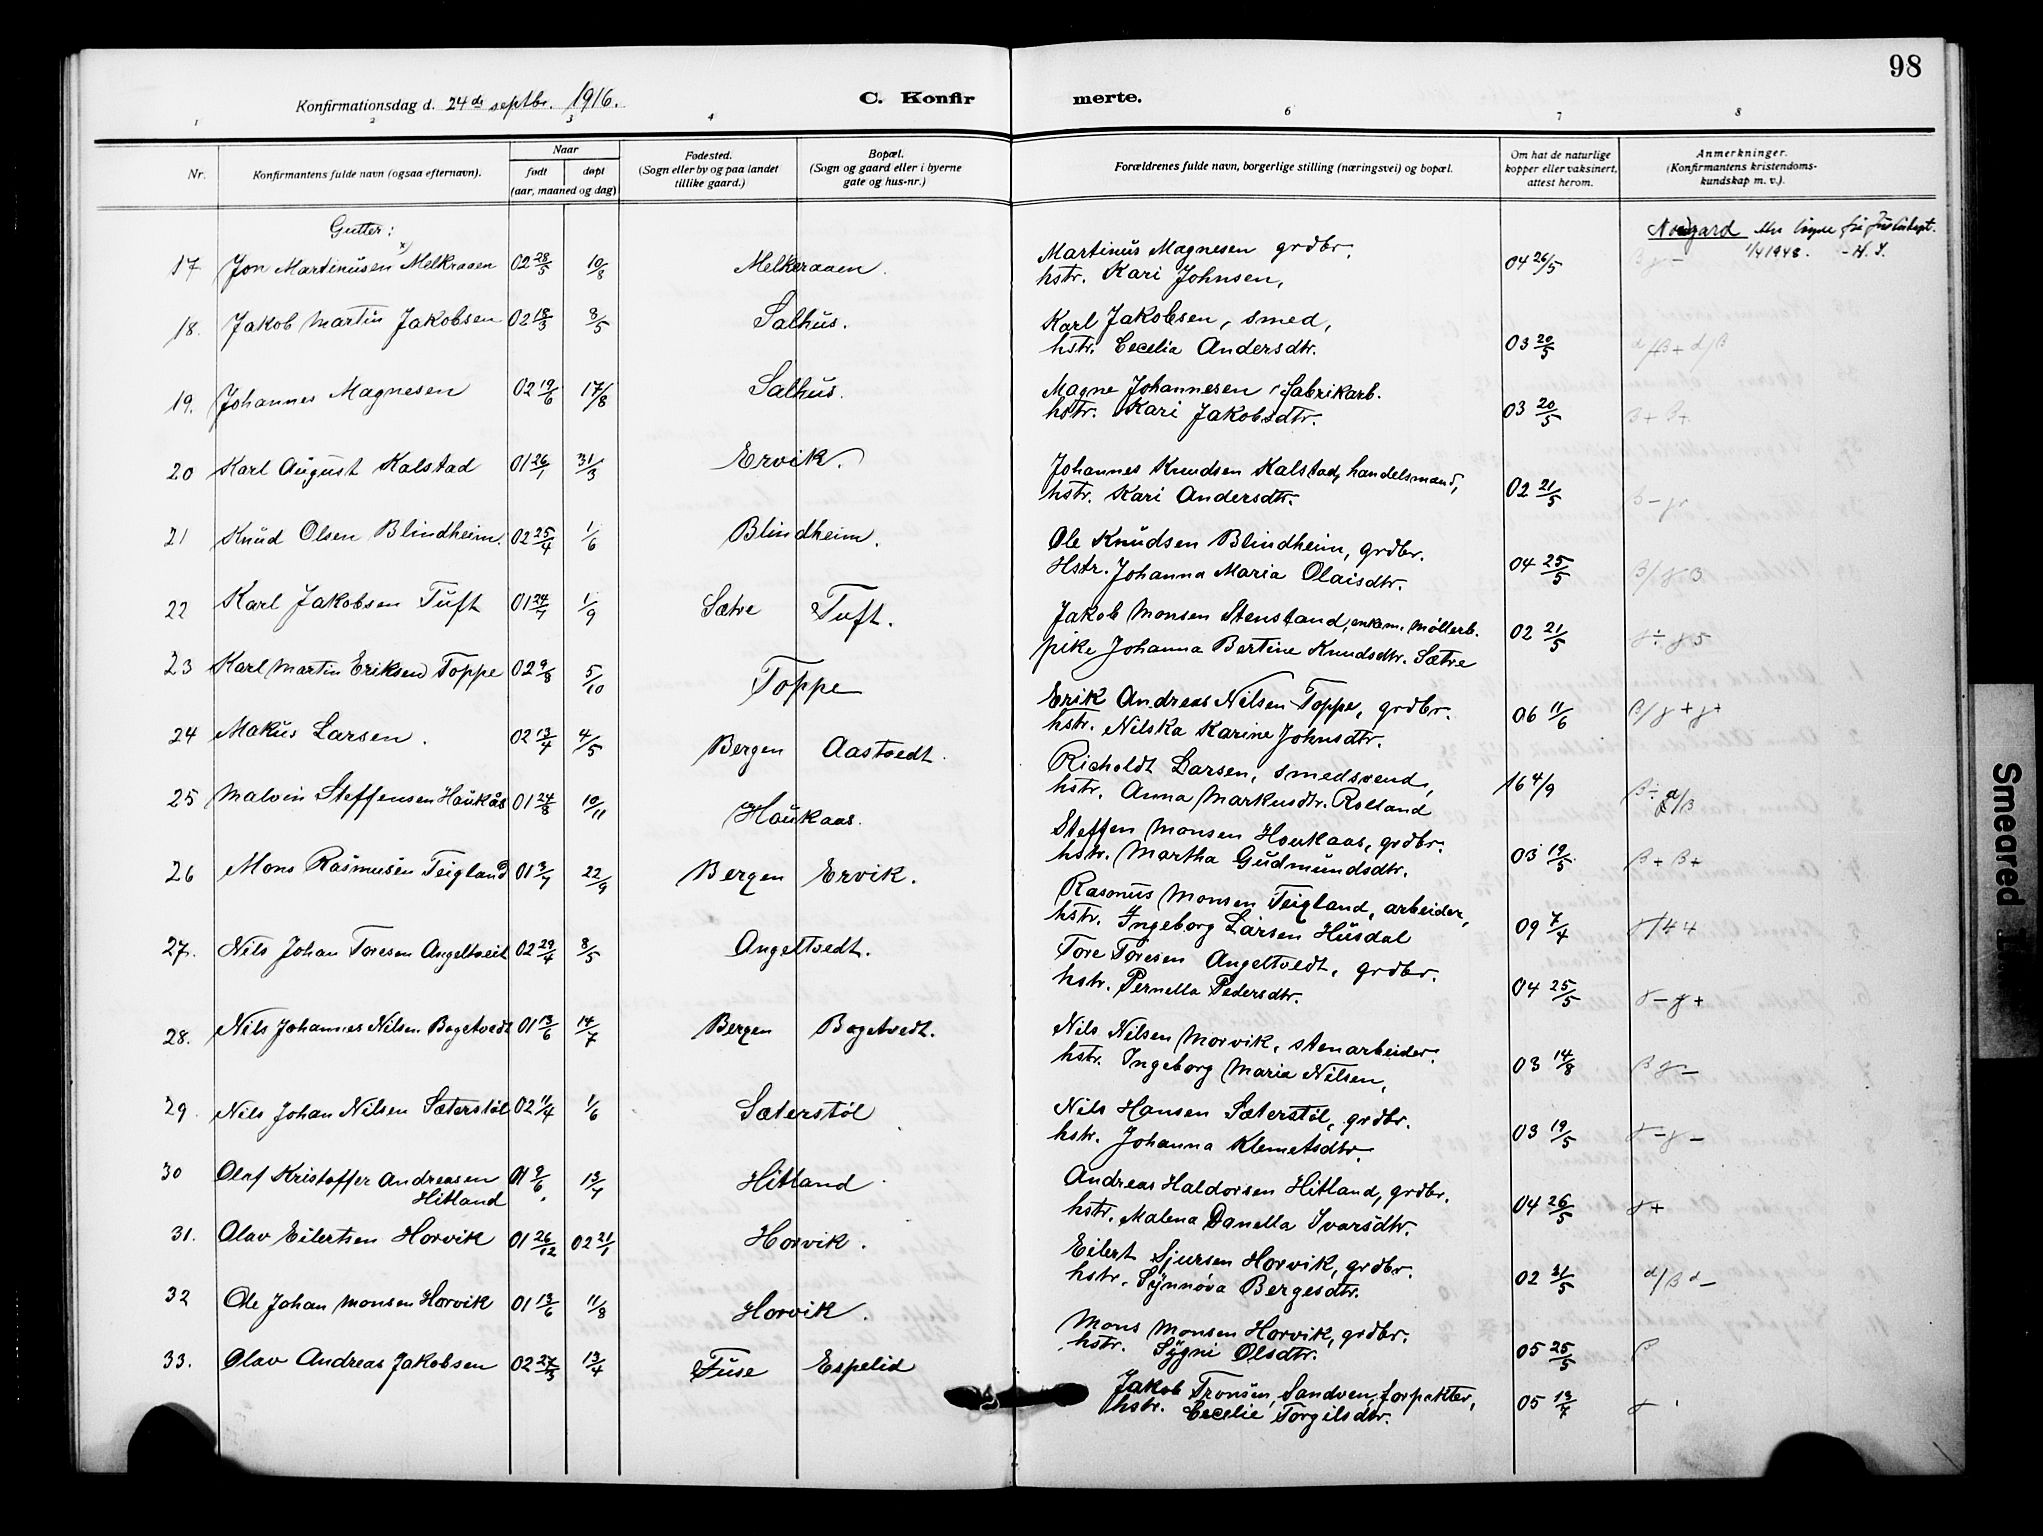 98
Konfirmationsdag d. 24de septbr. 1916.
C. Konfir merte.
1 2 3 4 6 7 8
Nr. Konfirmantens fulde navn (ogsaa efternavn). Naar født døpt (aar, maaned og dag) Fødested. (Sogn eller by og paa landet tillike gaard.) Bopæl. (Sogn og gaard eller i byerne gate og hus-nr.) Forældrenes fulde navn, borgerlige stilling (næringsvei) og bopæl. Om hat de naturlige kopper eller vaksinert, attest herom. Anmerkninger. (Konfirmantens kristendoms-kundskap m. v.).
Gutter:
17 Jon Martinusen x) Melkraaen 02 28/5 10/8 Melkeraaen. Martinus Magnesen grdbr. 04 26/5
hstr. Kari Johnsen,
1/4 1948. - H. S.
18. Jakob Martin Jakobsen 02 18/3 8/5 Salhus. Karl Jakobsen, smed, 03 20/5 α/β+ α/β
hstr. Cecelia Andersdtr.
19. Johannes Magnesen 02 19/6 17/8 Salhus. Magne Johannesen, fabrikarb. 03 20/5 β+ β+
hstr. Kari Jakobsdtr.
20 Karl August Kalstad 01 26/1 31/3 Ervik. Johannes Knudsen Kalstad, handelsmand, 02 21/5 β- γ
hstr. Kari Andersdtr.
21 Knud Olsen Blindheim. 02 25/4 1/6 Blindheim. Ole Knudsen Blindheim, grdbr. 04 25/5 β/γ β
Hstr. Johanna Maria Olaisdtr.
22 Karl Jakobsen Tuft 01 24/7 1/9 Sætre Tuft. Jakob Monsen Stensland, enkem. møllerb. 02 21/5
pike Johanna Bertine Knudsdtr. Sætre
23 Karl Martin Eriksen Toppe 02 9/8 5/10 Toppe Erik Andreas Nilsen Toppe, grdbr. 06 11/6 β/γ+ γ+
hstr. Nilska Karine Johnsdtr.
24 Makus Larsen. 02 13/4 4/5 Bergen Aastvedt. Richoldt Larsen, smedsvend, 16 4/9
hstr. Anna Markusdtr. Rolland
25 Malvin Steffensen Haukås 01 24/8 10/11 Haukaas. Steffen Monsen Haukaas, grdbr. 03 19/5 β+ β+
hstr. Martha Gudmundsdtr.
26 Mons Rasmusen Teigland 01 3/7 22/9 Bergen Ervik. Rasmus Monsen Teigland, arbeider,
hstr. Ingeborg Larsen Husdal 09 7/4
27. Nils Johan Toresen Angeltveit 02 29/4 8/5 Angeltvedt. Tore Toresen Angeltvedt, grdbr.
hstr. Pernella Pedersdtr. 04 25/5 γ- γ+
28. Nils Johannes Nilsen Bogetvedt 01 13/6 14/7 Bergen Bogetvedt. Nils Nilsen Morvik, stenarbeider.
hstr. Ingeborg Maria Nilsen, 03 14/8 β γ-
29. Nils Johan Nilsen Sæterstøl 02 11/4 1/6 Sæterstøl Nils Hansen Sæterstøl, grdbr.
hstr. Johanna Klemetsdtr. 03 19/5 γ- γ-
30 Olaf Kristoffer Andreasen Hitland 01 9/6 13/7 Hitland Andreas Haldorsen Hitland, grdbr.
hstr. Malena Danella Ivarsdtr. 04 26/5 γ+
31. Olav Eilertsen Horvik 01 26/12 02 21/1 Horvik. Eilert Sjursen Horvik, grdbr.
hstr. Synnøva Bergesdtr. 02 31/5 α/β α-
32 Ole Johan Monsen Horvik 01 13/6 11/8 Horvik. Mons Monsen Horvik, grdbr.
hstr. Sygni Olsdtr. 05 25/5 β
33. Olav Andreas Jakobsen 02 27/3 13/4 Fuse Espelid Jakob Tronsen Sandven, forpakter,
hstr. Cecelie Torgilsdtr. 05 13/7 γ
Smeared